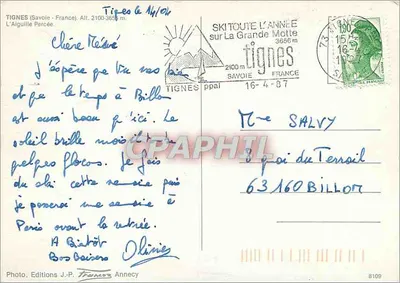 TIGNES (Savoie - France). Alt. 2100-3656 m.
L'Aiguille Percée
Tignes le 14/04
Chère Mémé
J'éspère que tu vas bien
que le temps à Billom
est aussi beau qu'ici. Le
soleil brille
quelques flocons. Je fais
du ski cette semaine puis
je passerai une semaine à
Paris avant la rentrée.
A Bientôt
Bos Baisers
Olivier
SKI TOUTE L'ANNÉE
sur La Grande Motte
3656 m
tignes
2100 m
SAVOIE FRANCE
TIGNES ppal
16-4-87
73 TIGNES
CPAPHIL
Mme SALVY
3 quai du Terrail
63160 BILLOM
Photo. Editions J.-P. Annecy